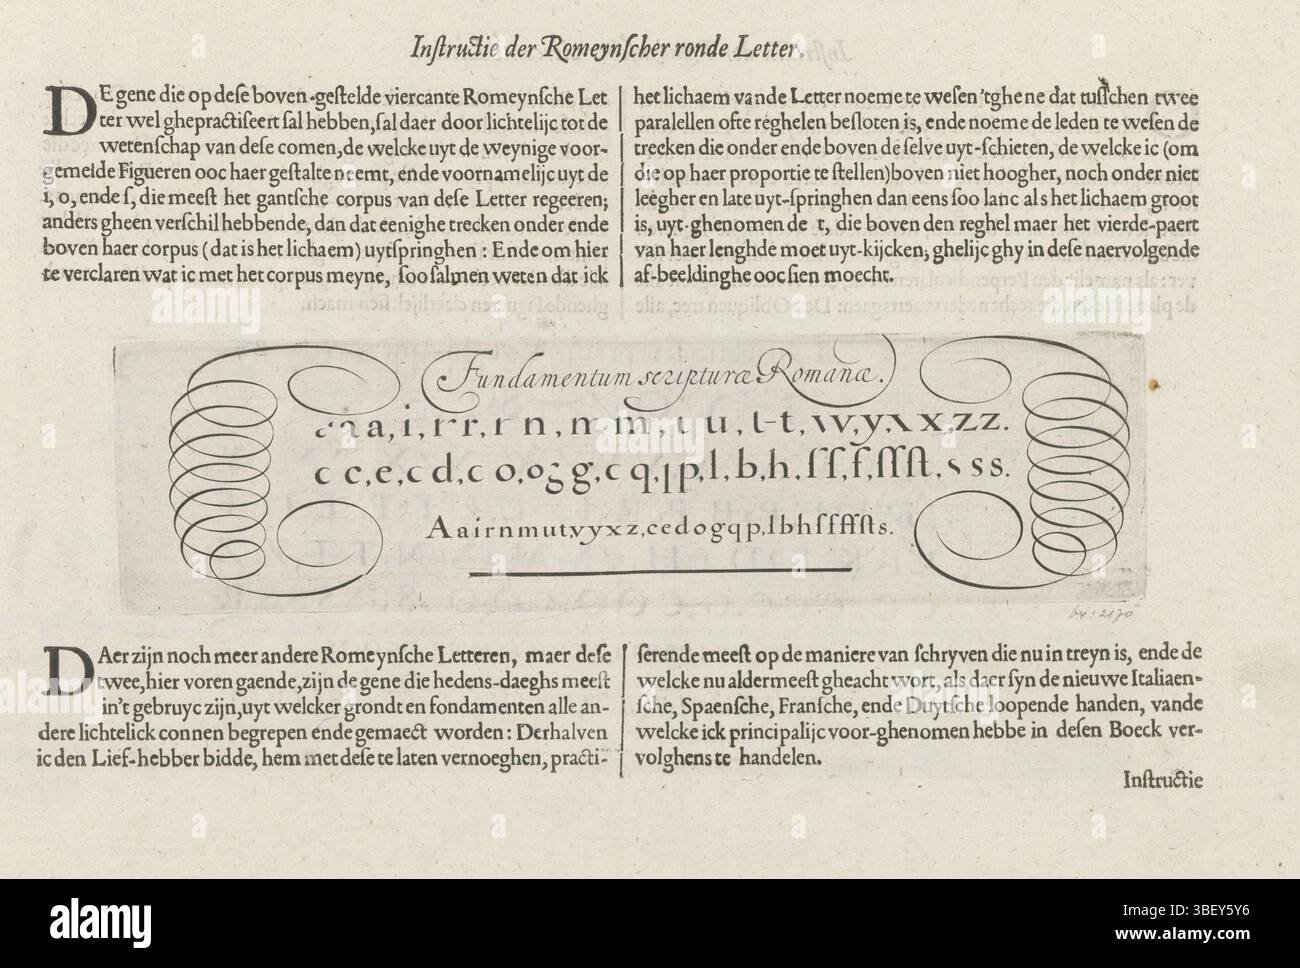 Inſtructie der Romeynſcher ronde Letter.
DE gene die op deſe boven-geſtelde viercante Romeynſche Let
ter wel ghepractiſeert ſal hebben, ſal daer door lichtelijc tot de
wetenſchap van deſe comen, de welcke uyt de weynige voor-
gemelde Figueren ooc haer geſtalte neemt, ende voornamelijc uyt de
i, o, ende ſ, die meeſt het gantſche corpus van deſe Letter regeeren;
anders gheen verſchil hebbende, dan dat eenighe trecken onder ende
boven haer corpus (dat is het lichaem) uytſpringhen: Ende om hier
te verclaren wat ic met het corpus meyne, ſoo ſalmen weten dat ick
het lichaem vande Letter noeme te weſen 'tghene dat tuſſchen twee
paralellen ofte reghelen beſloten is, ende noeme de leden te weſen de
trecken die onder ende boven de ſelve uyt-ſchieten, de welcke ic (om
die op haer proportie te ſtellen) boven niet hoogher, noch onder niet
leegher en late uyt-ſpringhen dan eens ſoo lanc als het lichaem groot
is, uyt-ghenomen de t, die boven den reghel maer het vierde-paert
van haer lenghde moet uyt-kijcken; ghelijc ghy in deſe naervolgende
af-beeldinghe ooc ſien moecht.
Fundamentum scripturæ Romanæ.
a, i, r r, r n, m, u, t, w, y, x, z z.
c c, e, c d, c o, o g, c q, p, l, b, h, ſſ, f, ſſſt, s s s.
A a i r n m u t v y x z, c e d o g q p, l b h ſſ ffſts.
64:2170
DAer zijn noch meer andere Romeynſche Letteren, maer deſe
twee, hier voren gaende, zijn de gene die hedens-daeghs meeſt
in't gebruyc zijn, uyt welcker grondt en fondamenten alle an-
dere lichtelick connen begrepen ende gemaect worden: Derhalven
ic den Lief-hebber bidde, hem met deſe te laten vernoeghen, practi-
ſerende meeſt op de maniere van ſchryven die nu in treyn is, ende de
welcke nu aldermeeſt gheacht wort, als daer ſyn de nieuwe Italiaen-
ſche, Spaenſche, Franſche, ende Duytſche loopende handen, vande
welcke ick principalijc voor-ghenomen hebbe in deſen Boeck ver-
volghens te handelen.
Inſtructie
alamy
Image ID: 3BEY5Y6
www.alamy.com